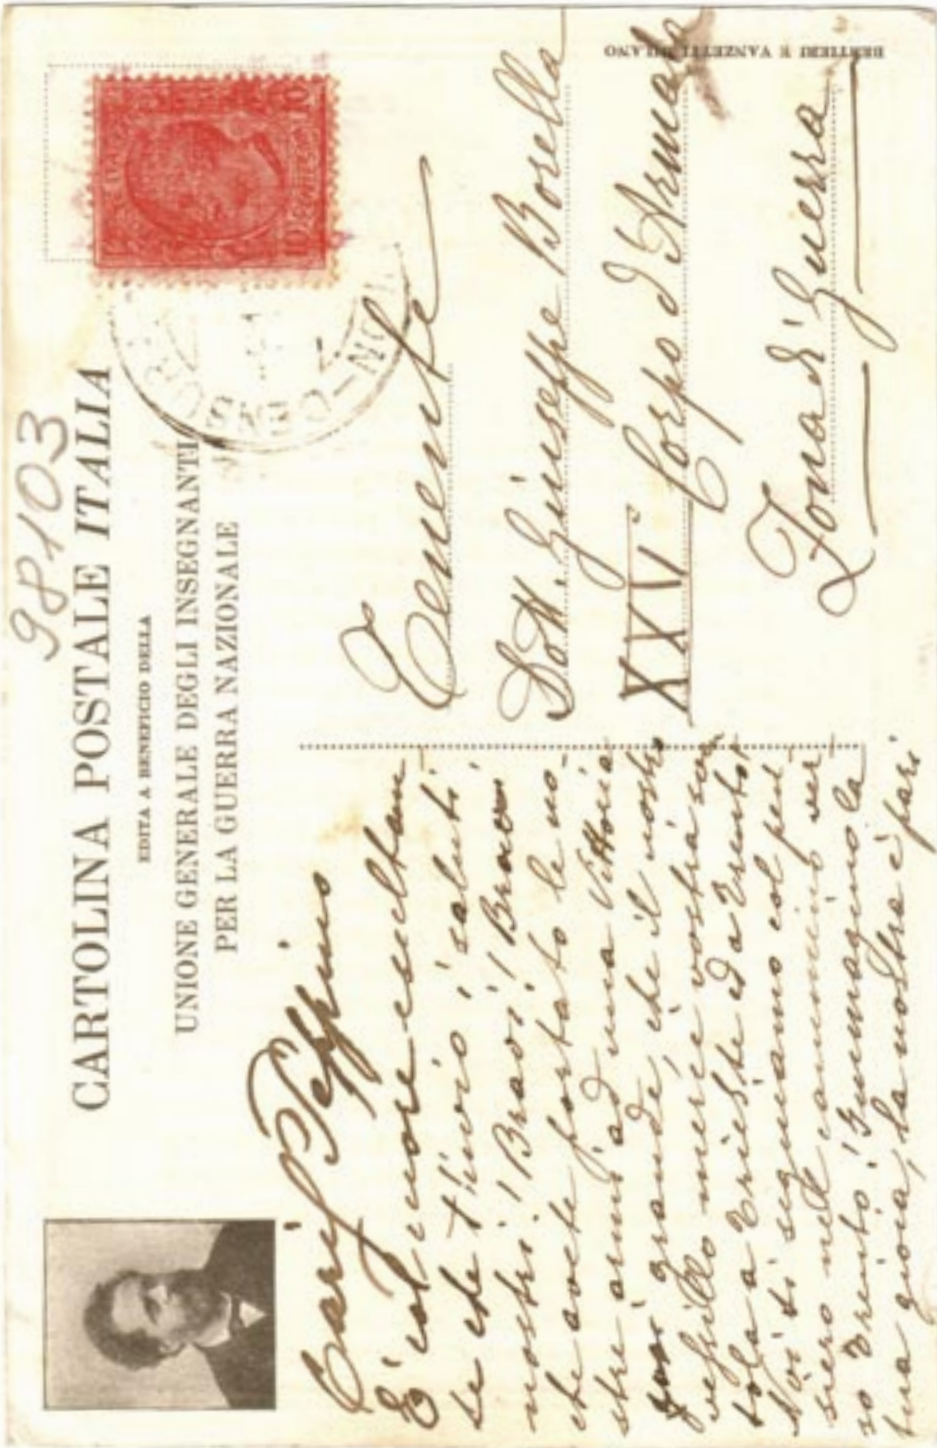 98103
CARTOLINA POSTALE ITALIA
EDITA A BENEFICIO DELLA
UNIONE GENERALE DEGLI INSEGNANTI
PER LA GUERRA NAZIONALE
Peppino
È col cuore esultan
te che t'invio i saluti
nostri! Bravi! Bravi! Bravi
che avete portato le no-
stre armi ad una Vittoria
grande, che il nostro
vessillo mercè vostra
tola a Trieste ed a Trento!
Noi ti seguiamo col pen
siero nel cammino ver
so Trento! Immagino la
tua gioia, la nostra è pari
Tenente
Dott. Giuseppe Borella
XXVI° Corpo d'Armata
Zona di Guerra
BERTIERI E VANZETTI MILANO